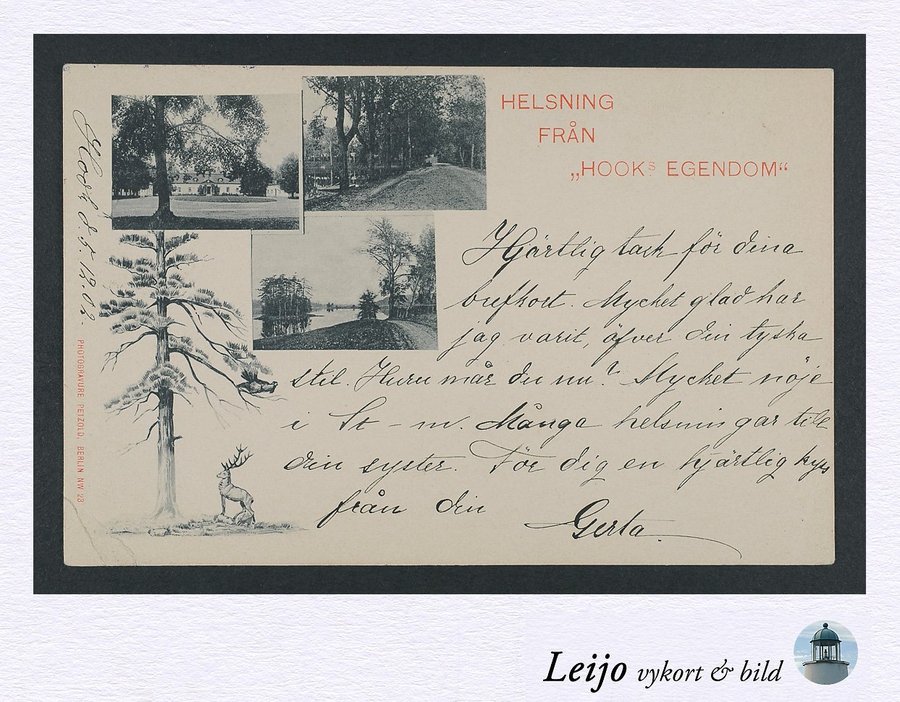 HELSNING
FRÅN
„HOOKS EGENDOM“
Hook d. 5.12.02.
Hjärtlig tack för dina
brefkort. Mycket glad har
jag varit, öfver din tyska
stil. Huru mår du nu? Mycket nöje
i St – m. Många helsningar till
din syster. För dig en hjärtlig kyss
från din
Gerta.
PHOTOGRAVURE PETZOLD, BERLIN NW 23
Leijo vykort & bild